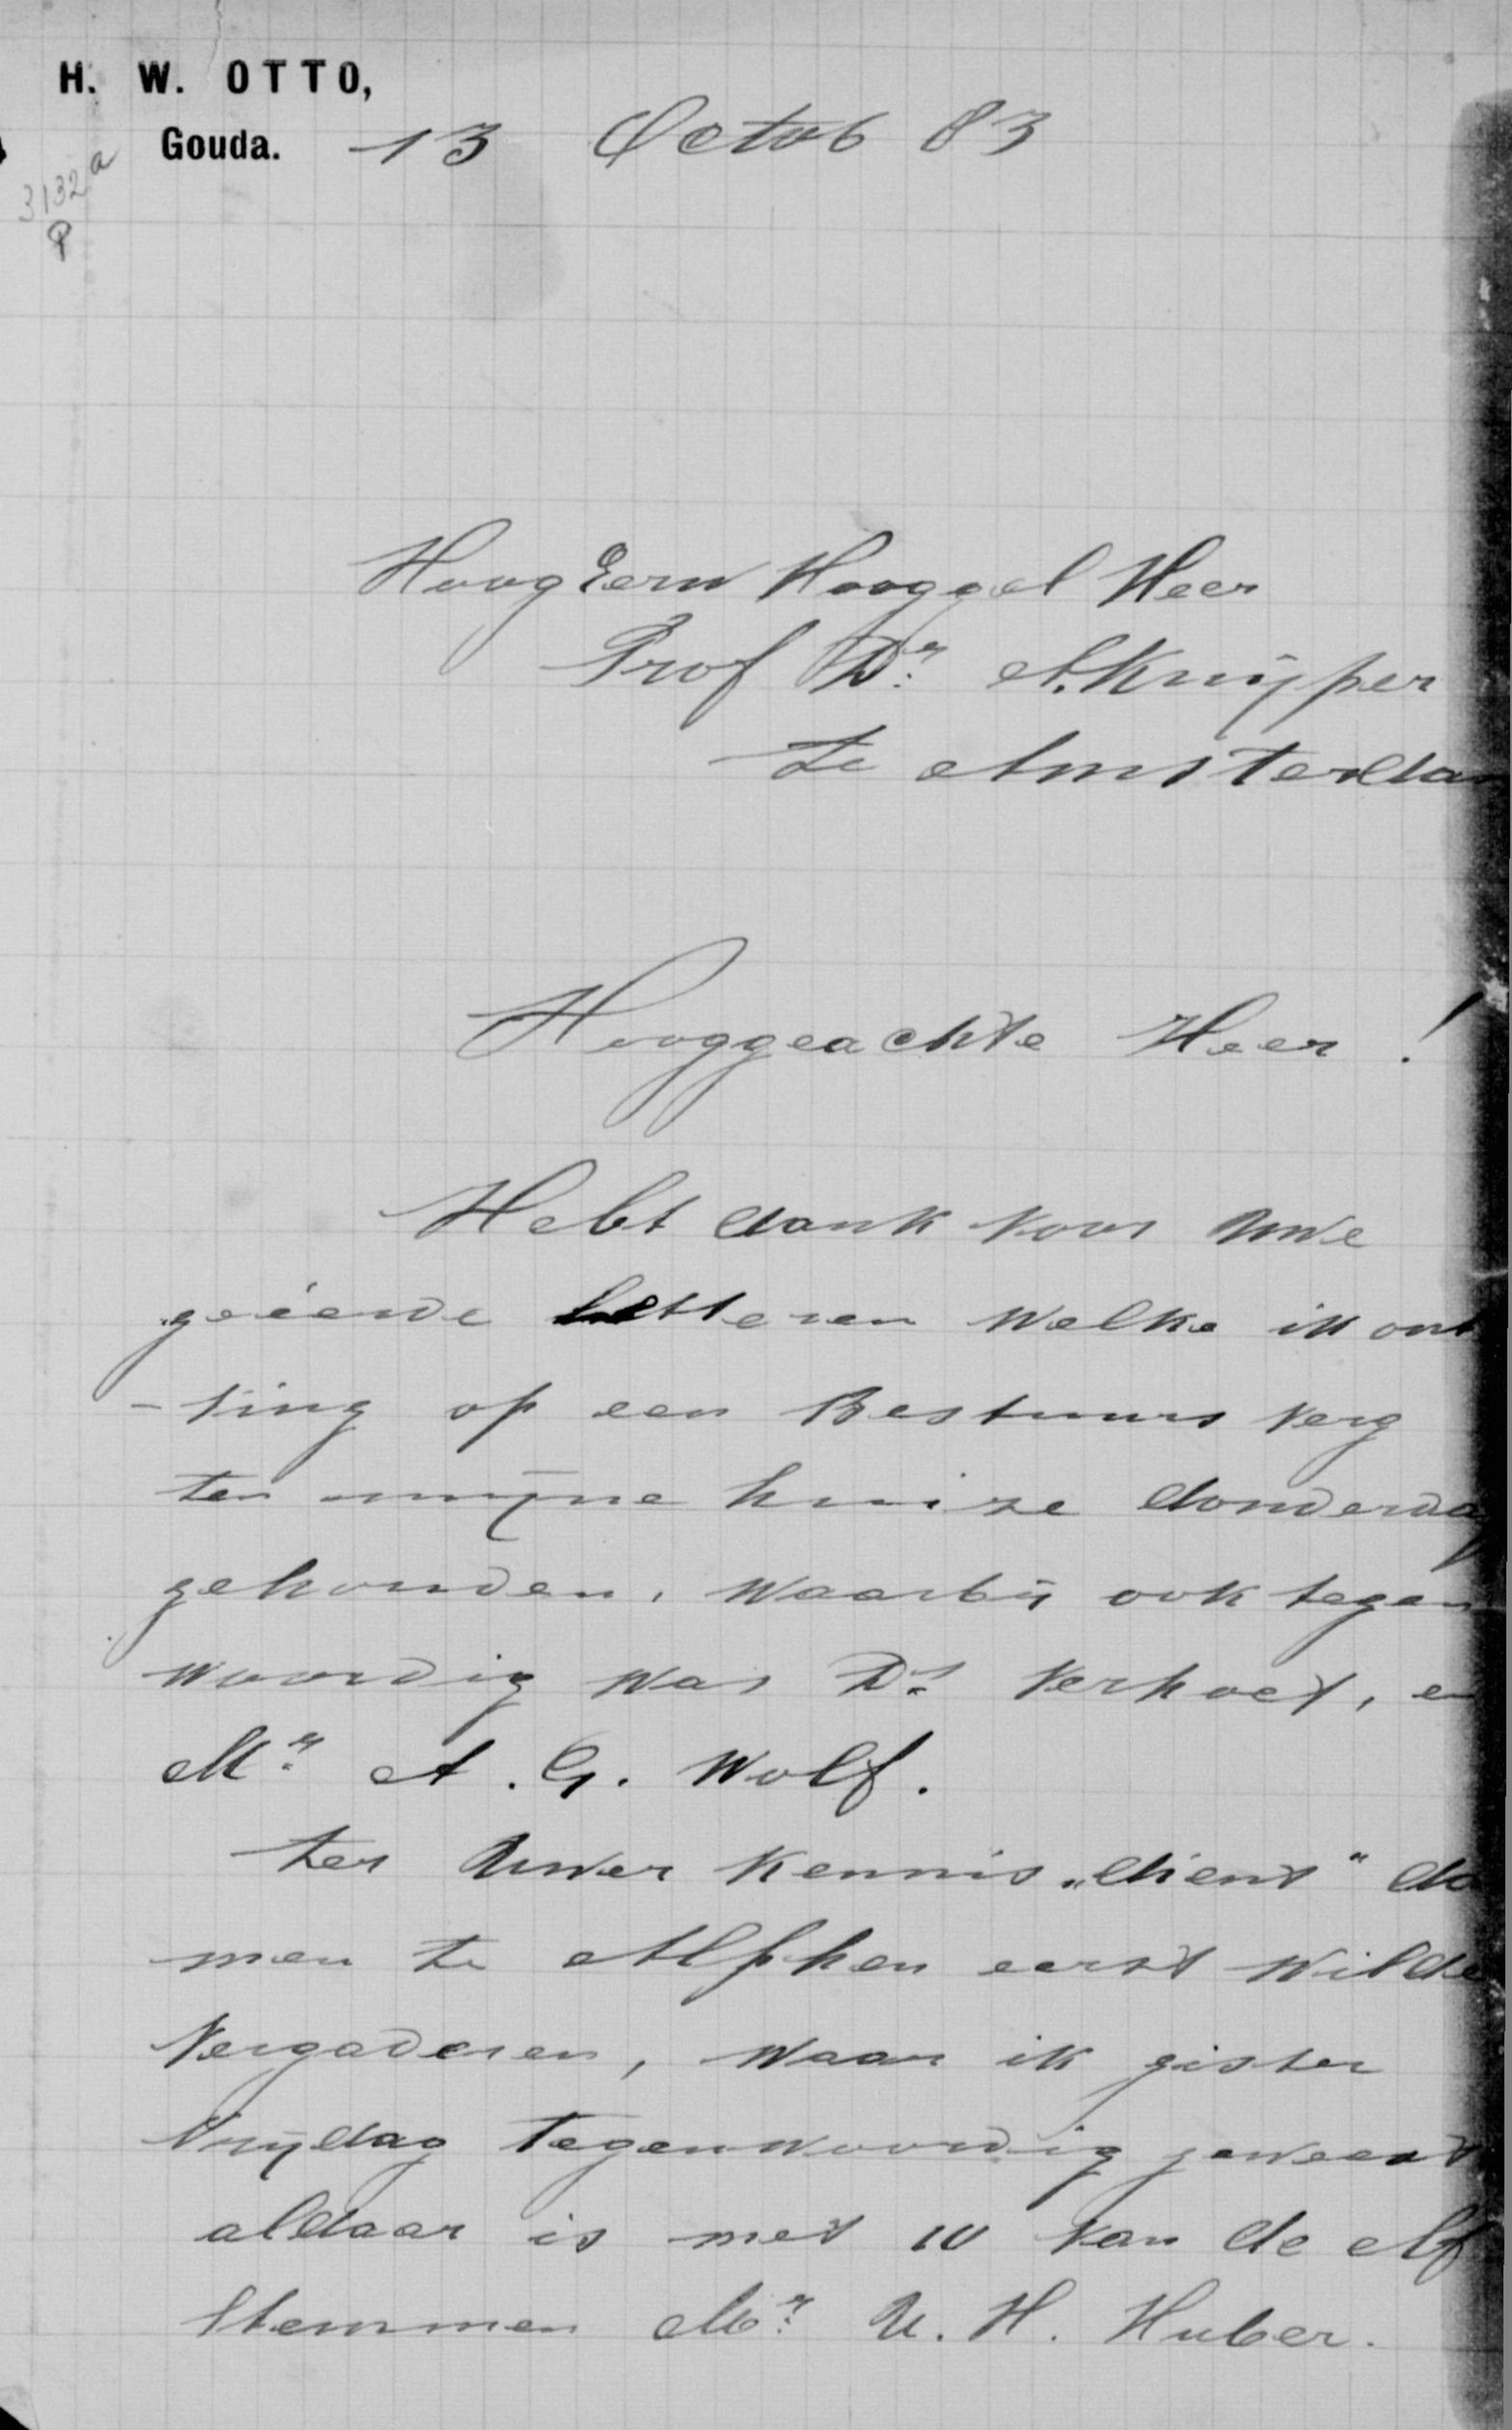 H. W. OTTO,
Gouda. 13 Octob 83
3132a
P
HoogEerw Hooggel Heer
Prof Dr. A. Kuijper
te Amsterdam
Hooggeachte Heer !
Hebt dank voor Uwe
geëerde letteren welke ik ont
-ving op een Bestuurs verg
ten mijne huize donderdag
gehouden, waarbij ook tegen
woordig was Ds. Verhoef, en
Mr. A. G. Wolf.
ter Uwer kennis „dient“ da
men te Alphen eerst wilde
vergaderen, waar ik gister
vrijdag tegenwoordig geweest
aldaar is met 10 van de elf
stemmen Mr. U. H. Huber.